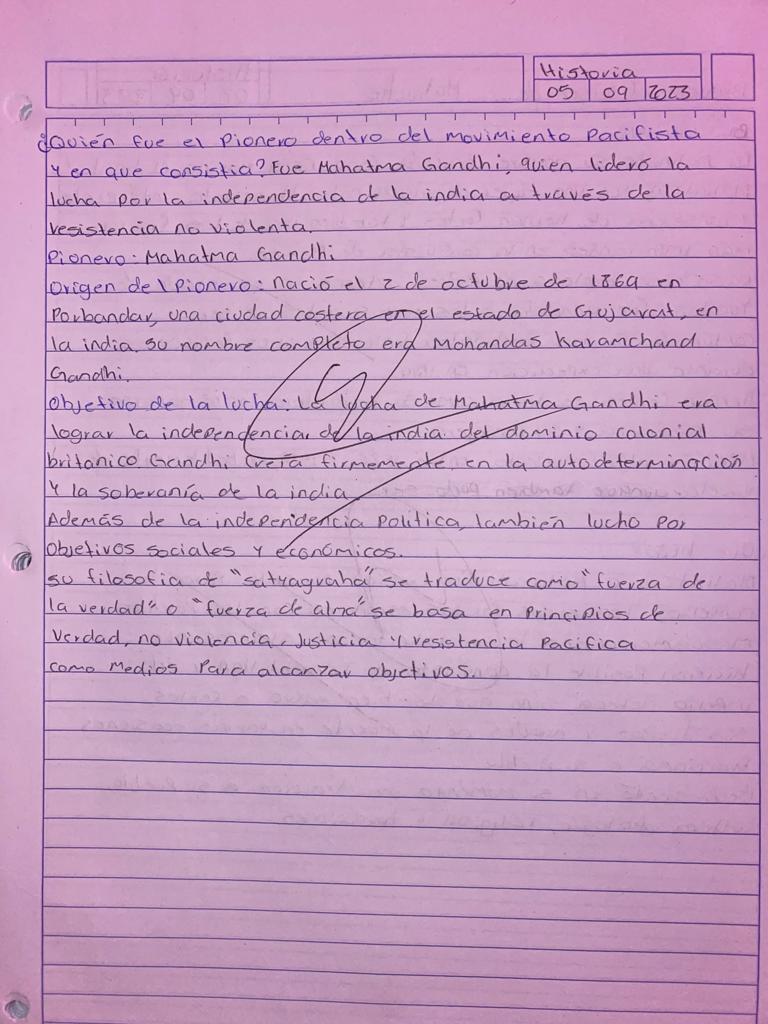 Historia
05 09 2023
¿Quién fue el Pionero dentro del movimiento Pacifista
Y en que consistia? Fue Mahatma Gandhi, quien lideró la
lucha por la independencia de la india a través de la
resistencia no violenta.
Pionero: Mahatma Gandhi
Origen del Pionero: nació el 2 de octubre de 1869 en
Porbandar, una ciudad costera en el estado de Gujarat, en
la india. su nombre completo era Mohandas Karamchand
Gandhi.
Objetivo de la lucha: La lucha de Mahatma Gandhi era
lograr la independencia de la india del dominio colonial
britanico Gandhi creía firmemente en la autodeterminación
Y la soberanía de la india
Además de la independencia Politica, también lucho por
Objetivos sociales y económicos.
su filosofia de "satyagraha" se traduce como "fuerza de
la verdad" o "fuerza de alma" se basa en Principios de
Verdad, no violencia, Justicia Y resistencia Pacifica
como Medios Para alcanzar objetivos.